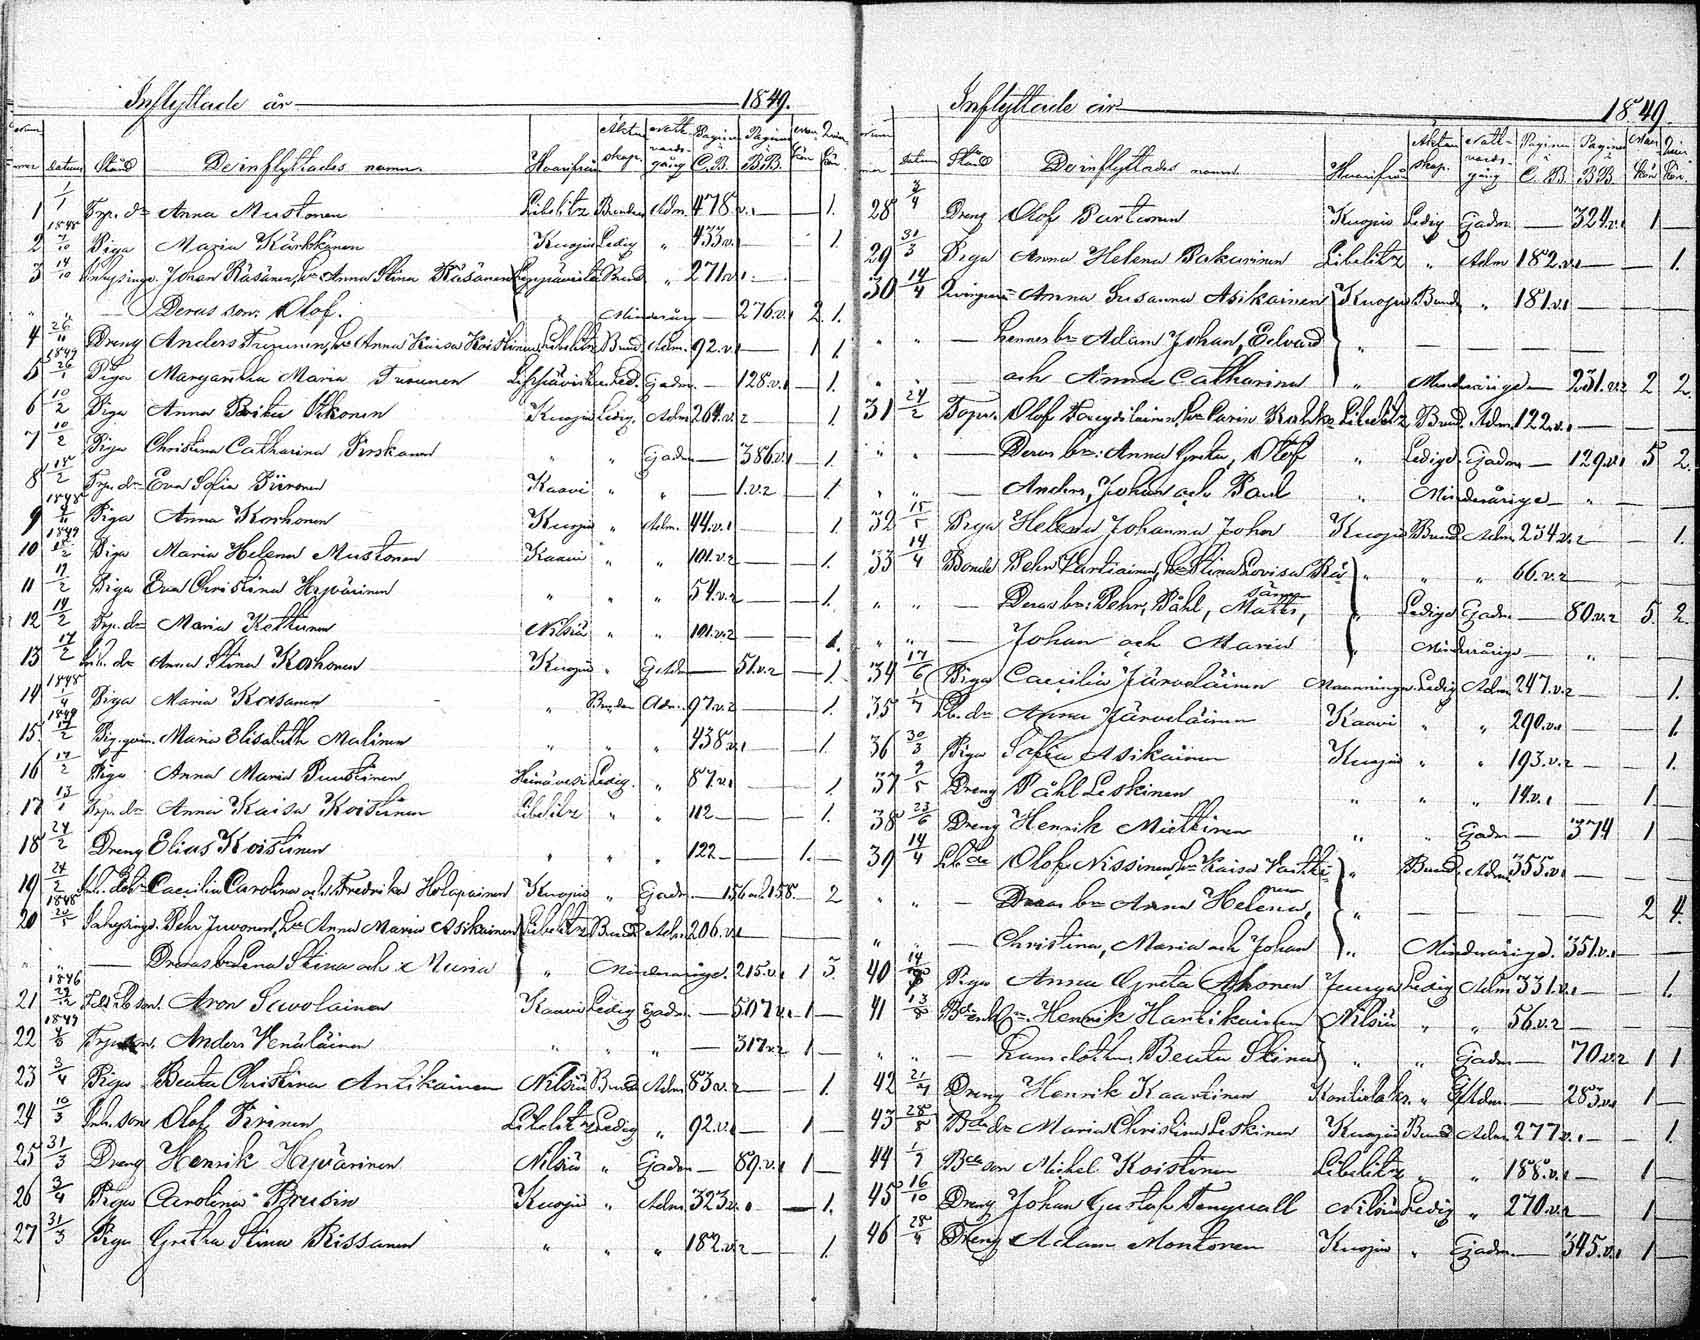 Inflyttade år 1849.
datum Stånd De inflyttades namn. Hvarifrån Äktenskap. Nattvardsgång Pagina C.B. Pagina B.B. Mankön Qvinkön
1 1/1 Trp. dr Anna Mustonen Libelitz Bunden Adm. 478.v.1 — — 1.
1848
2 7/10 Piga Maria Kärkkänen Kuopio Ledig " 433.v. — — 1.
3 14/10 Inhysinge Johan Räsänen, h. Anna Stina Räsänen Leppävirta Bund. " 271.v.1
" " — Deras son: Olof. Minderårig — 276.v.1 2. 1.
4 26/11 Dreng Anders Turunen, h. Anna Kaisa Koistinen Libelitz Bund. Adm. 92.v.1 — 1 1.
1849
5 26/1 Piga Margaretha Maria Turunen Leppävirta Led. Ej adm. — 128.v.1 — 1.
6 10/2 Piga Anna Brita Kuopio Ledig. Adm. 264.v.2 1.
7 10/2 Piga Christina Catharina Pirskanen " " Ej adm. — 386.v.1 — 1.
8 18/2 Trp. dr Eva Sofia Piironen Kaavi " " — 1.v.2 — 1.
1848
9 Piga Anna Korhonen Kuopio " Adm. 44.v.1 1.
1849
10 Piga Maria Helena Mustonen Kaavi " " 101.v.2 — 1.
11 17/2 Piga Eva Christina Hyvärinen " " " 54.v.2 — 1.
12 14/2 Trp. dr Maria Kettunen Nilsiä " " 101.v.2 1.
13 17/2 Inh. dr Anna Stina Korhonen Kuopio " Ej adm. — 51.v.2 — 1
1848
14 1/4 Piga Maria Kossanen " Bunden Adm. 97.v.2 — 1.
1849
15. 17/2 Maria Elisabeth Malinen " " " 438.v.1 — 1.
16 17/2 Piga Anna Maria Puustinen Heinävesi Ledig. " 87.v.1 1
17 13/1 Trp. dr Anna Kaisa Koistinen Libelitz " " 112 — — 1.
18 24/2 Dreng Elias Koistinen " " " 122 — — 1. —
19 24/2 Caecilia Carolina och Fredrika Holopainen Kuopio " Ej adm. — 156 och 158. — 2
1848
20 20/5 Inhysinge. Pehr Juvonen, h. Anna Maria Asikainen Libelitz Bund. Adm. 206.v.1
" " — Deras br: Lena Stina och Maria " Minderårige. 215.v.1 1 3.
1846
21 29/12 son. Aron Savolainen Kaavi Ledig Ej adm. — 507.v.1 1 —
1849
22 4/3 Trp. son. Anders Venäläinen " " " — 317.v.2 1 —
23 3/4 Piga Beata Christina Antikainen Nilsiä Bund. Adm. 83.v.2 — — 1.
24 10/3 Inh. son Olof Pirinen Libelitz Ledig " 92.v.1 — 1 —
25 31/3 Dreng Henrik Hyvärinen Nilsiä " Ej adm. — 89.v.1 1 —
26 3/4 Piga Carolina Brusin Kuopio " Adm. 323.v.1 — 1.
27 31/3 Piga Gretha Stina Rissanen " " " 182.v.2 — 1.
Inflyttade år 1849.
datum Stånd De inflyttades namn. Hvarifrån Äktenskap. Nattvardsgång Pagina C.B. Pagina B.B. Mankön Qvinkön.
28 3/4 Dreng Olof Partanen Kuopio Ledig Ej adm. — 324.v.1 1 —
29 31/3 Piga Anna Helena Pakarinen Libelitz " Adm. 182.v.1 — — 1.
30 14/4 Anna Susanna Asikainen Kuopio Bund. " 181.v.1 — —
" " — hennes br Adam Johan, Edvard " — — — — —
" " — och Anna Catharina " Minderårige — 251.v.2 2 2.
31 24/2 Torpr. Olof h. Carin Libelitz Bund. Adm. 122.v.1 — — —
" " — Deras br: Anna Greta, Olof " Ledige Ej adm. — 129.v.1 5 2.
" " — Anders, Johan och Paul " Minderårige — " — —
32 15/5 Piga Helena Johanna John Kuopio Bund. Adm. 254.v.2 — — 1.
33 14/4 Bonde Pehr Vartiainen, h. Stina Lovisa Räsänen " " " 66.v.2 — — —
" " — Deras br: Pehr, Påhl, Matts, " Ledige Ej adm. — 80.v.2 5. 2.
" " — Johan och Maria " Minderårige — " — —
34 17/6 Piga Caecilia Järveläinen Maaninga Ledig Adm. 247.v.2 — — 1.
35 1/7 Lb. dr Anna Järveläinen Kaavi " " 290.v.1 — — 1.
36 30/3 Piga Sofia Asikainen Kuopio " " 193.v.2 — — 1.
37 9/5 Dreng Påhl Leskinen " " " 14.v.1 — 1
38 23/6 Dreng Henrik Miettinen " " Ej adm. — 374 1 —
39 14/4 Lb. de Olof Nissinen, h. Kaisa " Bund. Adm. 355.v.1 — — —
" " — Deras br Anna Helena, " — — — — 2 4.
" " — Christina, Maria och Johan " Minderårige. 351.v.1 — —
40 Piga Anna Greta Ahonen Ledig Adm. 331.v.1 — — 1.
41 13/8 Henrik Hartikainen Nilsiä " " 56.v.2 — — —
" " — hans dotter Beata Stina " " Ej adm. — 70.v.2 1 1
42 Dreng Henrik Kaartinen Kontiolaks. " Ej Adm. — 283.v.1 1 —
43 28/8 Bde dr Maria Christina Leskinen Kuopio Bund. Adm. 277.v.1 — — 1.
44 1/7 Bde son Michel Koistinen Libelitz " " 188.v.1 — 1 —
45 16/10 Dreng Johan Gustaf Tengvall Nilsiä Ledig " 270.v.2 — 1 —
46 Dreng Adam Montonen Kuopio " Ej adm. — 345.v.1 1 —